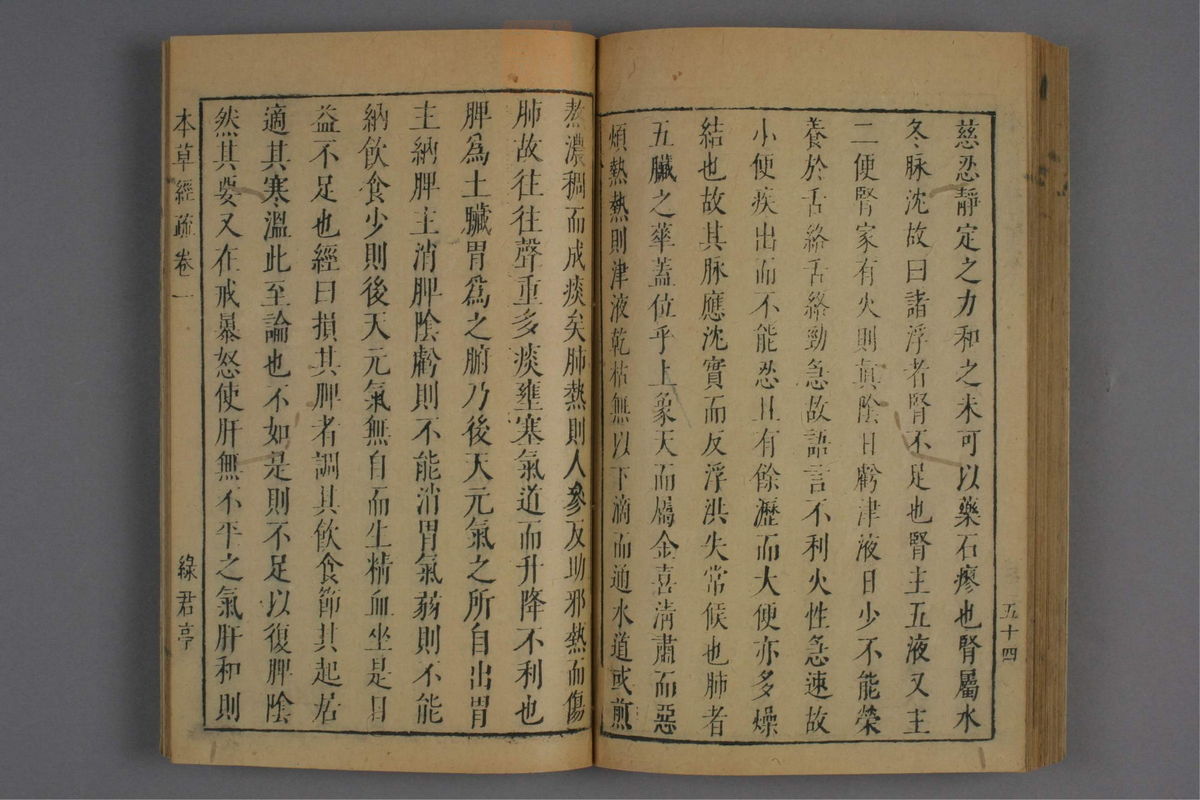 慈忍靜定之力和之未可以藥石瘳也腎屬水
冬脉沈故曰諸浮者腎不足也腎主五液又主
二便腎家有火則眞陰日虧津液日少不能榮
養於舌絡舌絡勁急故語言不利火性急速故
小便疾出而不能忍且有餘瀝而大便亦多燥
結也故其脉應沈實而反浮洪失常候也肺者
五臟之華蓋位乎上象天而屬金喜清肅而惡
煩熱熱則津液乾枯無以下滴而通水道或煎
五十四
熬濃稠而成痰矣肺熱則人參反助邪熱而傷
肺故往往聲重多痰壅塞氣道而升降不利也
脾爲土臟胃爲之腑乃後天元氣之所自出胃
主納脾主消脾陰虧則不能消胃氣弱則不能
納飲食少則後天元氣無自而生精血坐是日
益不足也經曰損其脾者調其飲食節其起居
適其寒溫此至論也不如是則不足以復脾陰
然其要又在戒暴怒使肝無不平之氣肝和則
本草經疏卷一
綠君亭